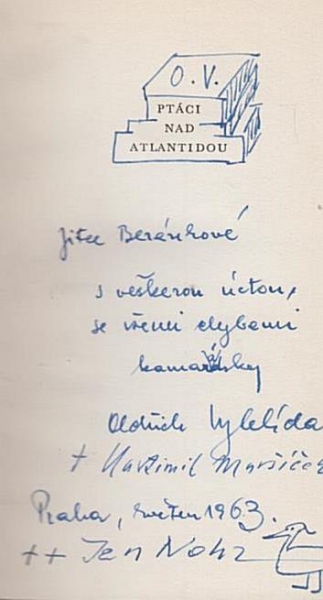 O. V.
PTÁCI
NAD
ATLANTIDOU
Jitce Beránkové
s veškerou úctou,
se všemi chybami
kamarádsky
Oldřich Vyhlída
+ Vlastimil Maršíček
Praha, květen 1963.
++ Jen